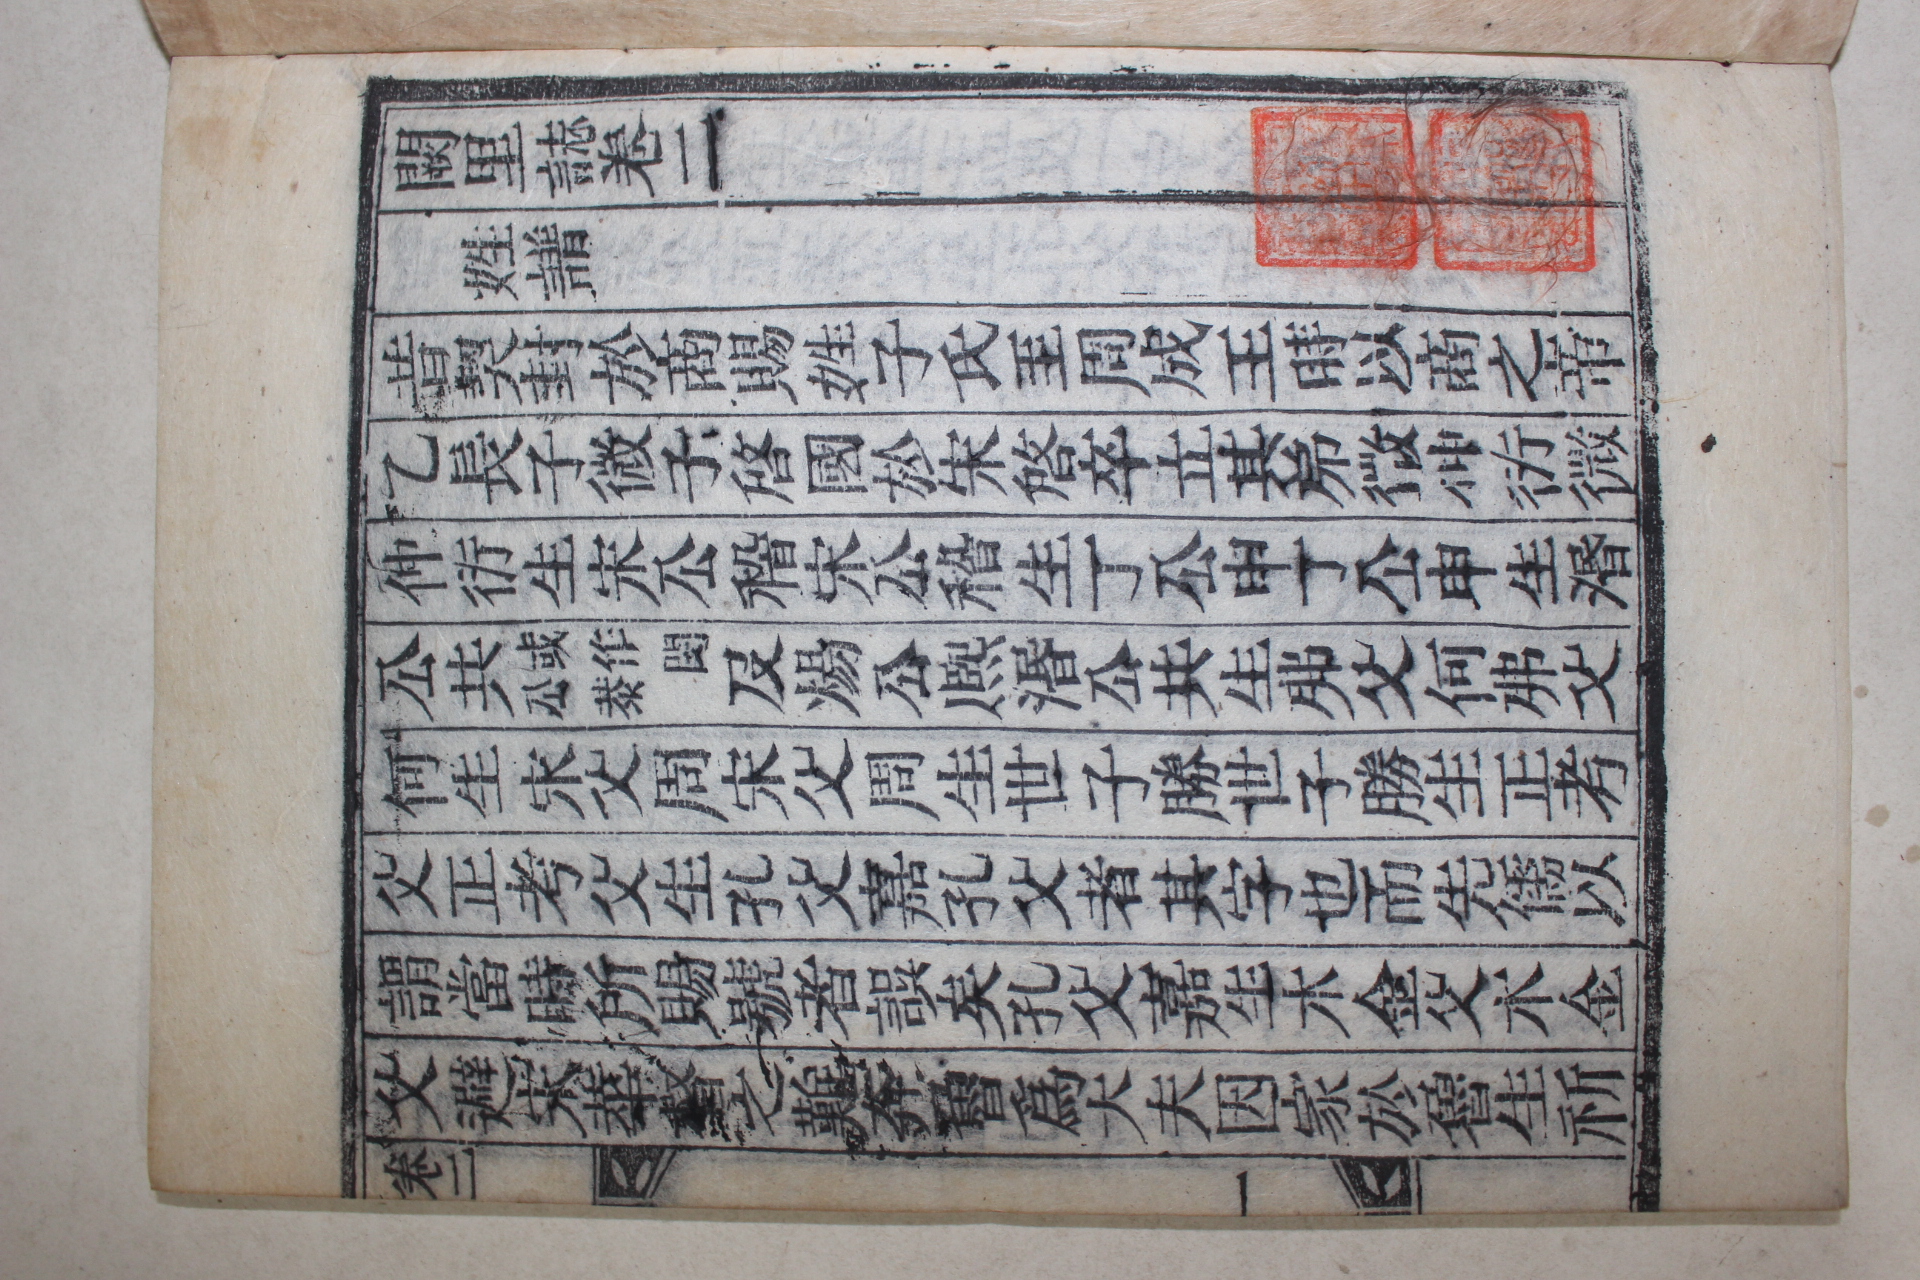 闕里誌卷二
姓譜
昔契封於商賜姓子氏至周成王時以商之帝
乙長子微子啓國於宋啓卒立其弟微仲衍微
仲衍生宋公稽宋公稽生丁公申丁公申生湣
公共或作公泰閔及煬公熙湣公共生弗父何弗父
何生宋父周宋父周生世子勝世子勝生正考
父正考父生孔父嘉孔父者其字也而先儒以
謂當時所賜號者誤矣孔父嘉生木金父木金
父避宋華督之難奔魯爲大夫因家於魯生祈
卷二
一